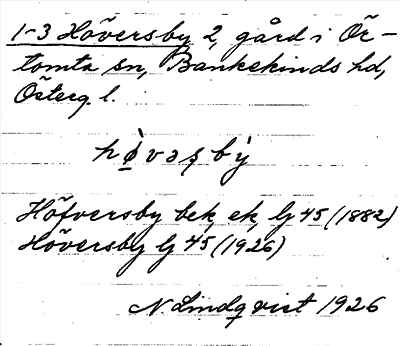 1-3 Höversby 2, gård i Ör-
tomta sn, Bankekinds hd,
Österg. l.
hø̀vaʂbẏ
Höfversby bek, ek, Gj 45 (1882)
Höversby Gj 45 (1926)
N. Lindqvist 1926